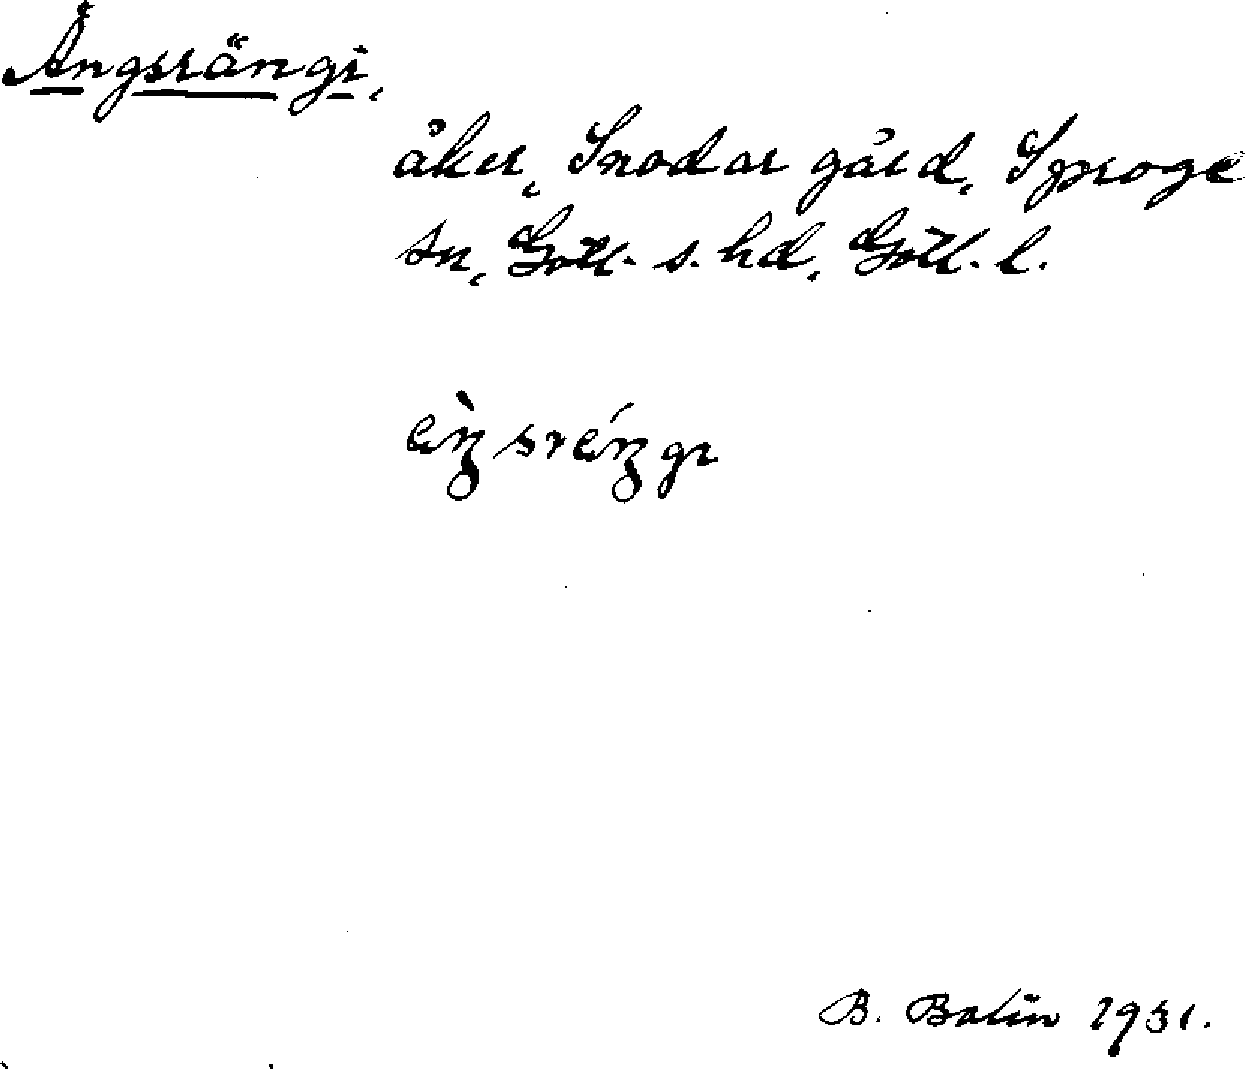 Ängsrängi,
åker, Snodar gård, Sproge
sn, Gotl. s. hd, Gotl. l.
B. Bolin 1931.